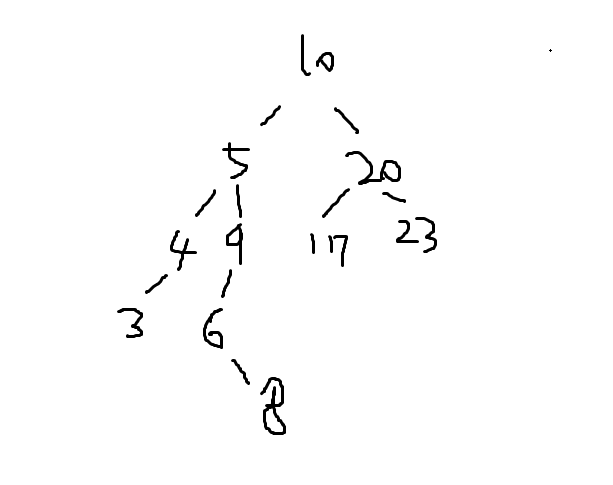 10
5 20
4 9 17 23
3 6
8